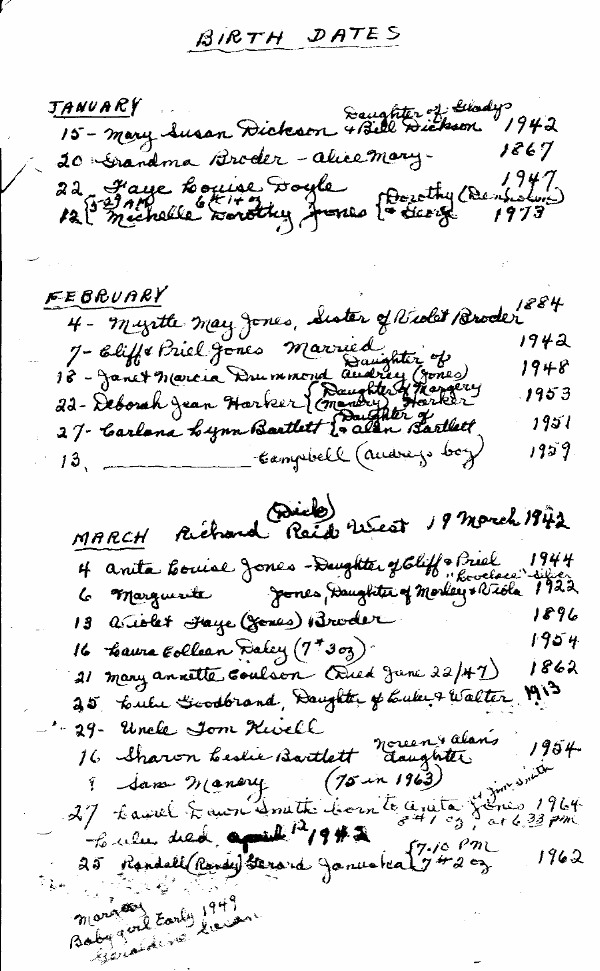 BIRTH DATES
JANUARY
15 - Mary Susan Dickson Daughter of Gladys & Bill Dickson 1942
20 Grandma Broder - Alice Mary - 1867
22 Faye Louise Doyle 1947
12 { 5-29 AM 6 # 14 oz Michelle Dorothy Jones { Dorothy & George 1973
FEBRUARY
4 - Myrtle May Jones, Sister of Violet Broder 1884
7 - Cliff & Priel Jones Married 1942
18 - Janet Marcia Drummond Daughter of Audrey (Jones) 1948
22 - Deborah Jean Harker { Daughter of Margery (Manery) Harker 1953
27 - Carlana Lynn Bartlett { Daughter of & Alan Bartlett 1951
13, Campbell (Audreys boy) 1959
MARCH Richard (Dick) Reid West 19 March 1942
4 Anita Louise Jones - Daughter of Cliff & Priel 1944
6 Marguerite "Lovelace" Jones, Daughter of Morley & Viola 1922
13 Violet Faye (Jones) Broder 1896
16 Laura Colleen Daley (7 # 3 oz) 1954
21 Mary Annette Coulson (Died June 22/47) 1862
25 Lulu Goodbrand, Daughter of Lulu & Walter 1913
29 - Uncle Tom Kivell
16 Sharon Leslie Bartlett Noreen & Alan's daughter 1954
9 Sam Manery (75 in 1963)
27 Laurel Dawn Smith born to Anita Jones & Jim Smith 1964
8 # 1 oz, at 6.33 pm
Lulu died April 12 1942
25 Randall (Randy) Gerard Januska { 7.10 PM 7 # 2 oz 1962
Margery
Baby girl Early 1949
Geraldine